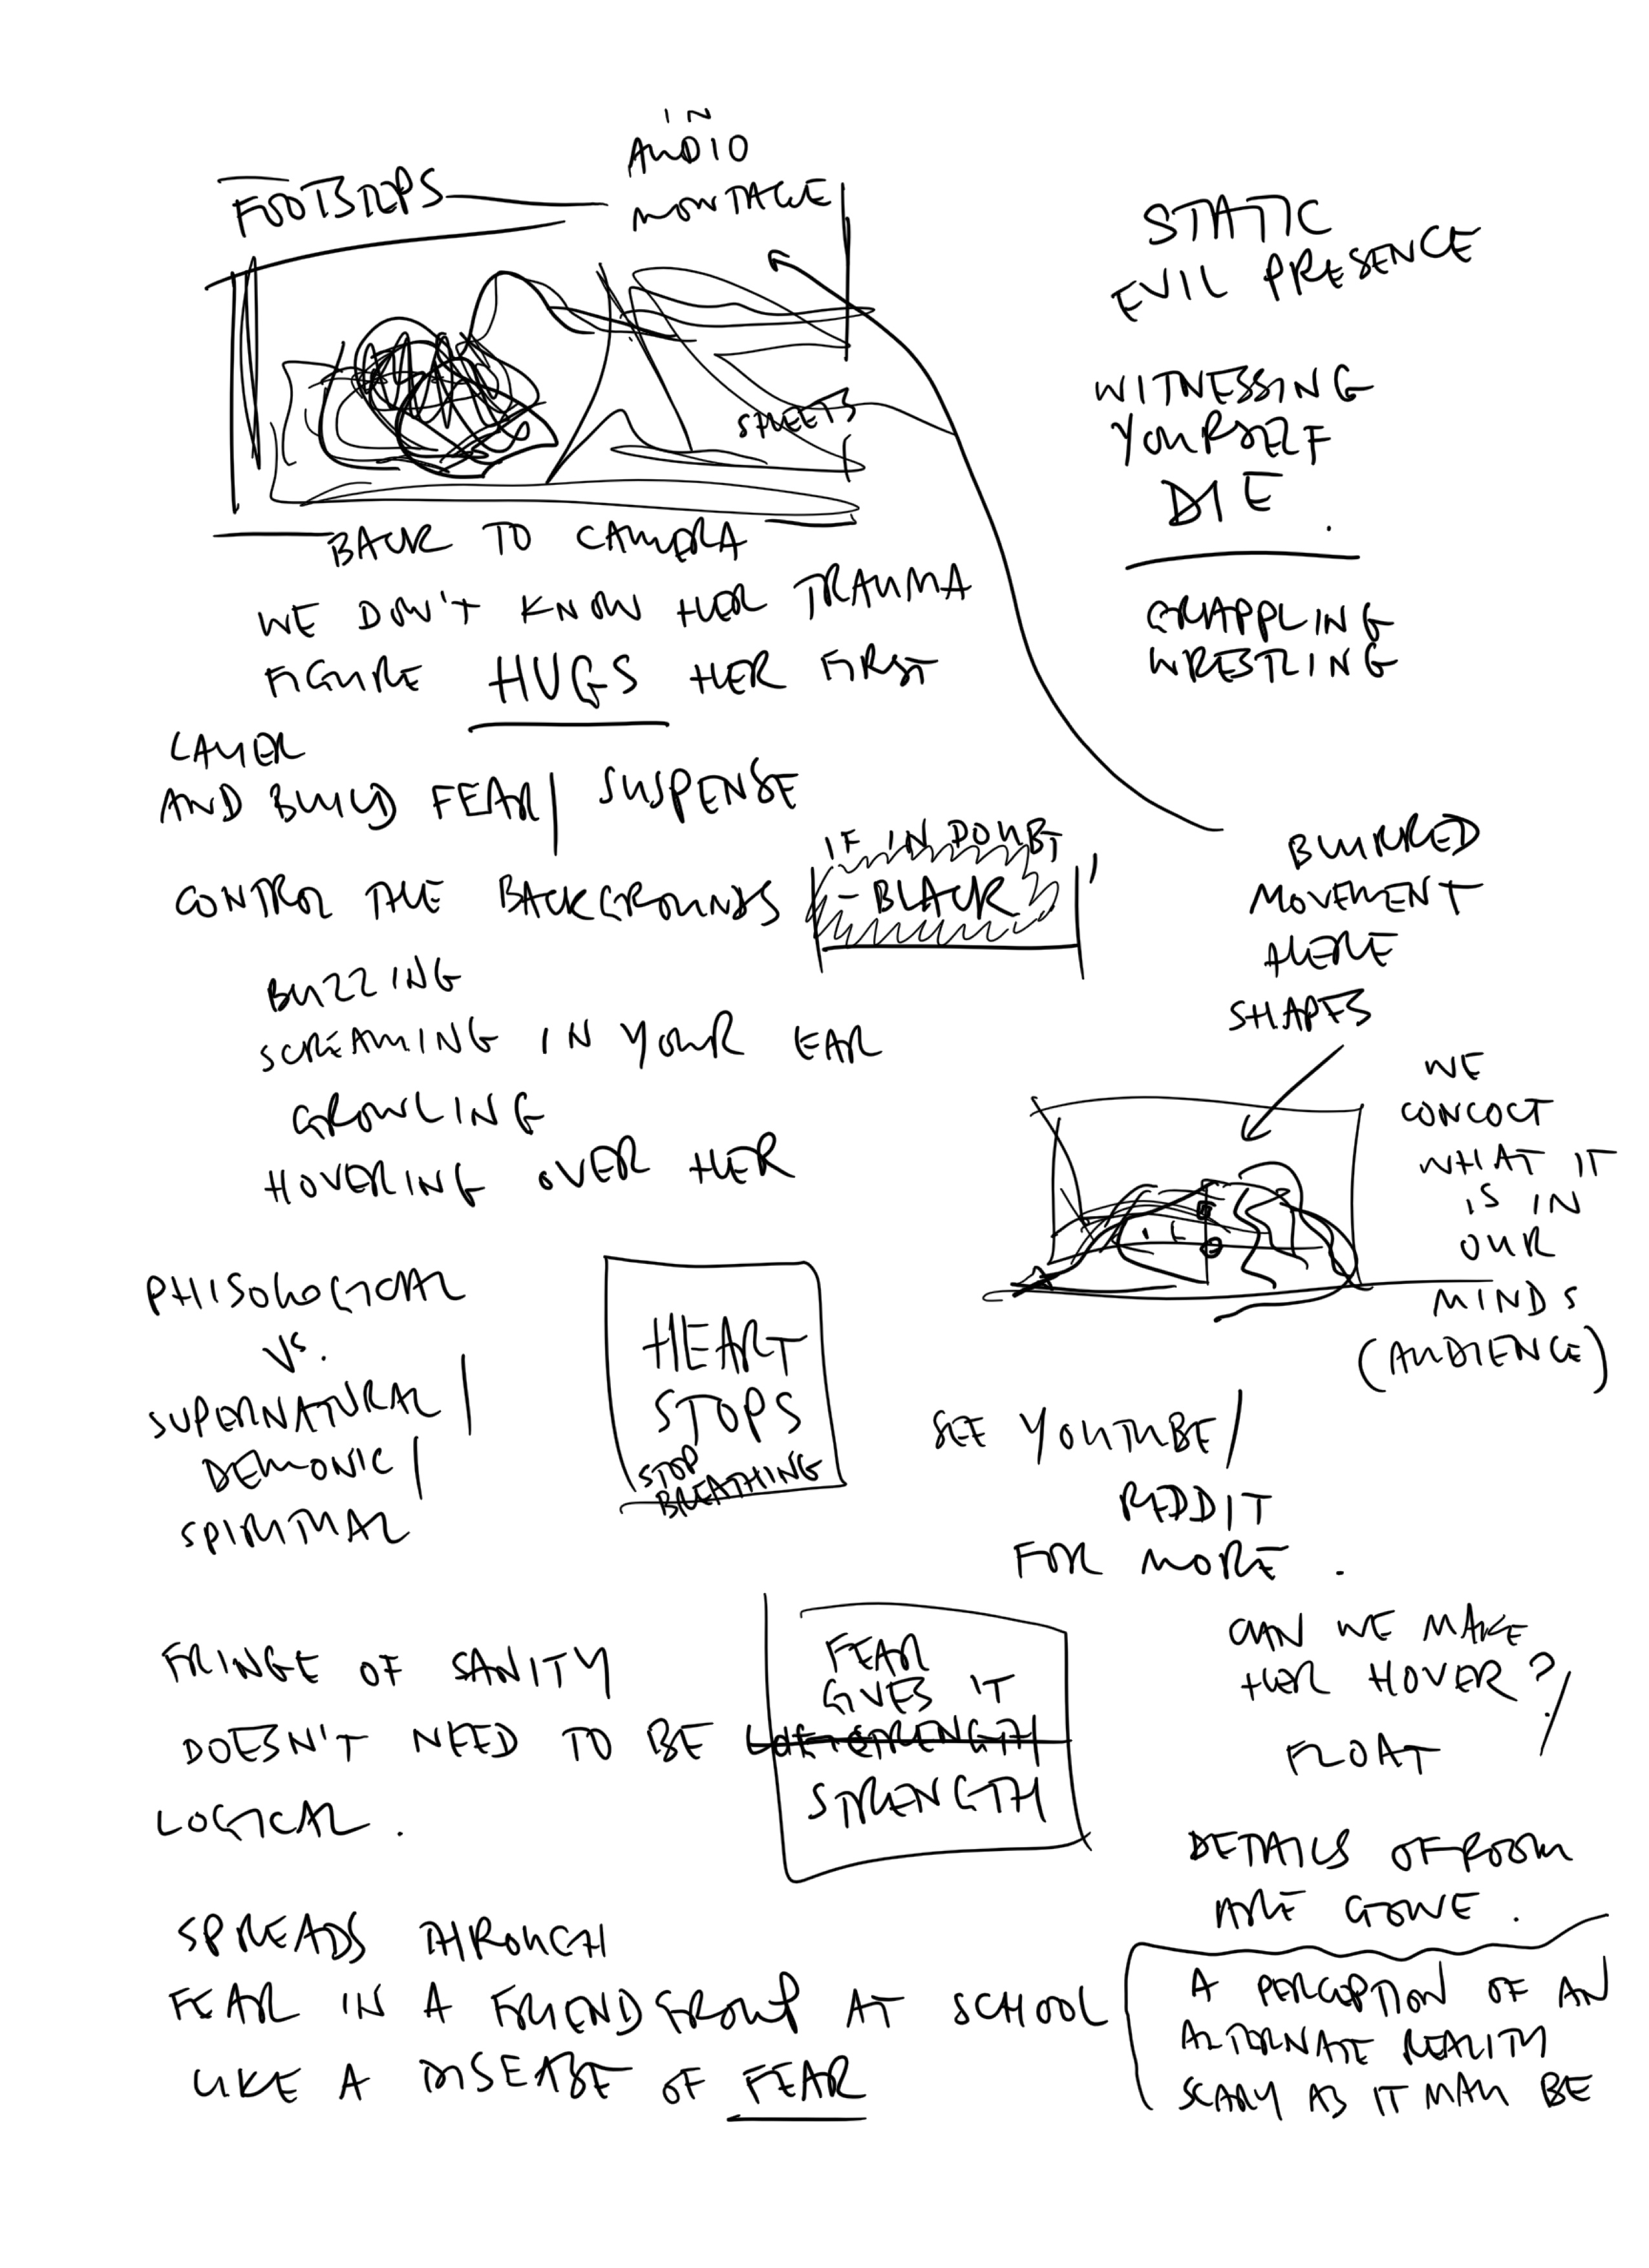 IN
AUDIO
FOOTSTEPS — MONTAGE
SHEETS
BACK TO CAMERA
WE DON'T KNOW HER TRAUMA
FIGURE HUGS HER FIRST
LAYER
AND BUILD FEAR/ SUSPENSE
CONTROL THE BACKGROUNDS
IF IN DOUBT,
- BLACK
BUZZING
SCREAMING IN YOUR EAR
GROWLING
HOVERING OVER HER
PHISOLOGICAL
VS.
SUPERNATURAL/
DEMONIC/
SPIRITUAL
HEART
STOPS
STOP
BREATHING
FRINGE OF SANITY
DOESN'T NEED TO BE
LOGICAL.
FEAR
GIVES IT
STRENGTH
SPREADS THROUGH
FEAR IN A FRIENDSGROUP AT SCHOOL
LIKE A DISEASE OF FEAR
STATIC
EVIL PRESENCE
WITNESSING
YOURSELF
DIE.
GRAPPLING
WRESTLING
BLURRED
MOVEMENT
HERE
SHAPES
WE
CONCOCT
WHAT IT
IS IN
OUR
MINDS
(AUDIENCE)
SEE YOUTUBE/
REDDIT
FOR MORE.
CAN WE MAKE
HER HOVER?/
FLOAT
DETAILS OF ROOM
ARE GONE.
A PERCEPTION OF AN
ALTERNATE REALITY
SCARY AS IT MAY BE